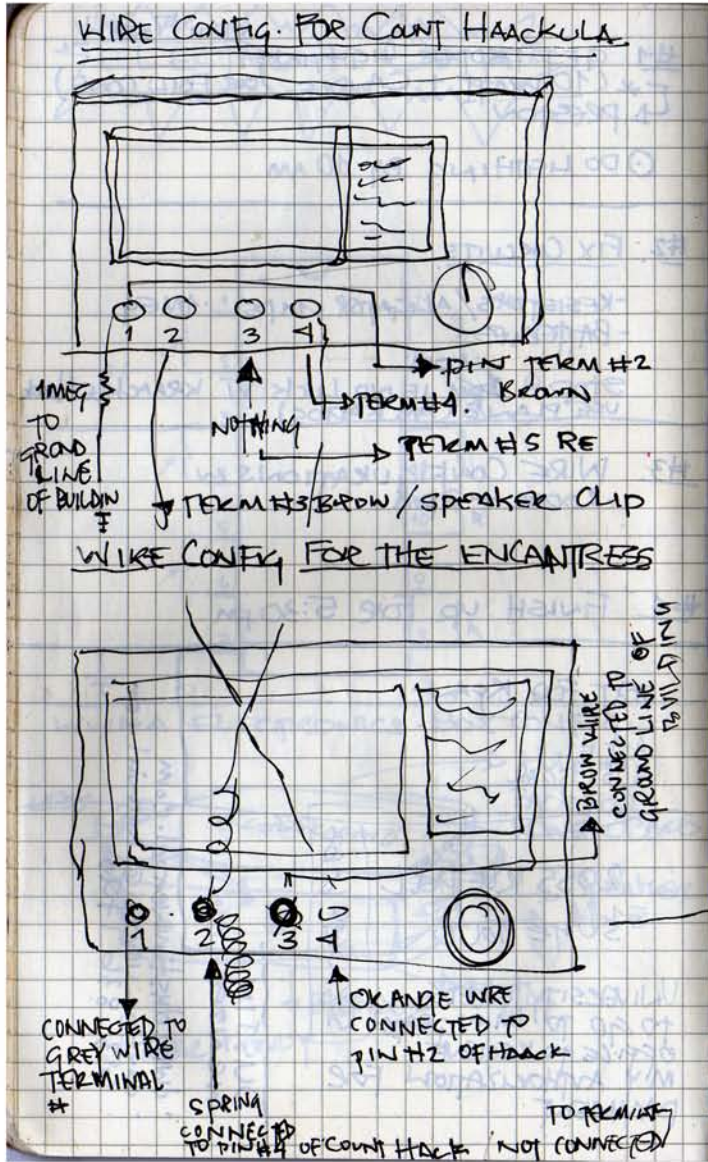 WIRE CONFIG. FOR COUNT HAACKULA
1 2 3 4
1MEG
TO
GROND
LINE
OF BUILDIN
NOTHING
PIN TERM #2
BROWN
TERM #4.
TERM #5 RE
TERM #3/BROW/SPEAKER CLIP
WIRE CONFIG FOR THE ENCANTRESS
BROW WIRE
CONNECTED TO
GROUND LINE OF
BUILDING
1 2 3 4
CONNECTED TO
GREY WIRE
TERMINAL
#
SPRING
CONNECTED
TO PIN #4 OF COUNT HACK
ORANGE WIRE
CONNECTED TO
PIN #2 OF HAACK
NOT CONNECTED